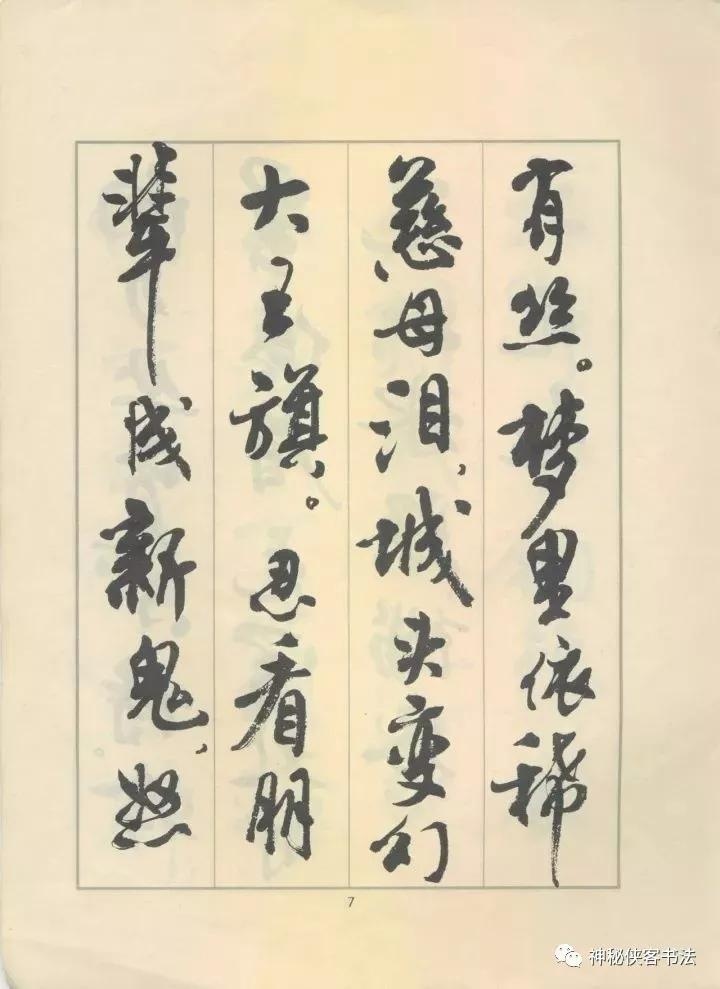 有丝。梦里依稀
慈母泪，城头变幻
大王旗。忍看朋
辈成新鬼，怒
7
神秘侠客书法